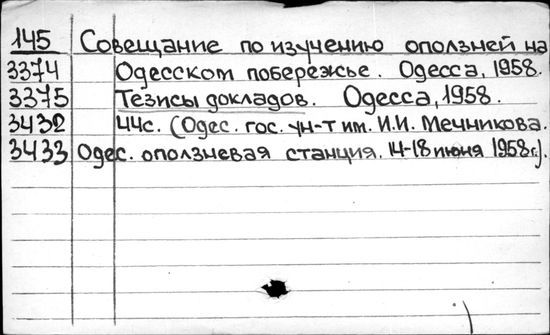 145 Совещание по изучению оползней на
3374 Одесском побережье. Одесса, 1958.
3375 Тезисы докладов. Одесса, 1958.
3432 44с. (Одес. гос. ун-т им. И.И. Мечникова.
3433 Одес. оползневая станция. 14-18 июня 1958г.).